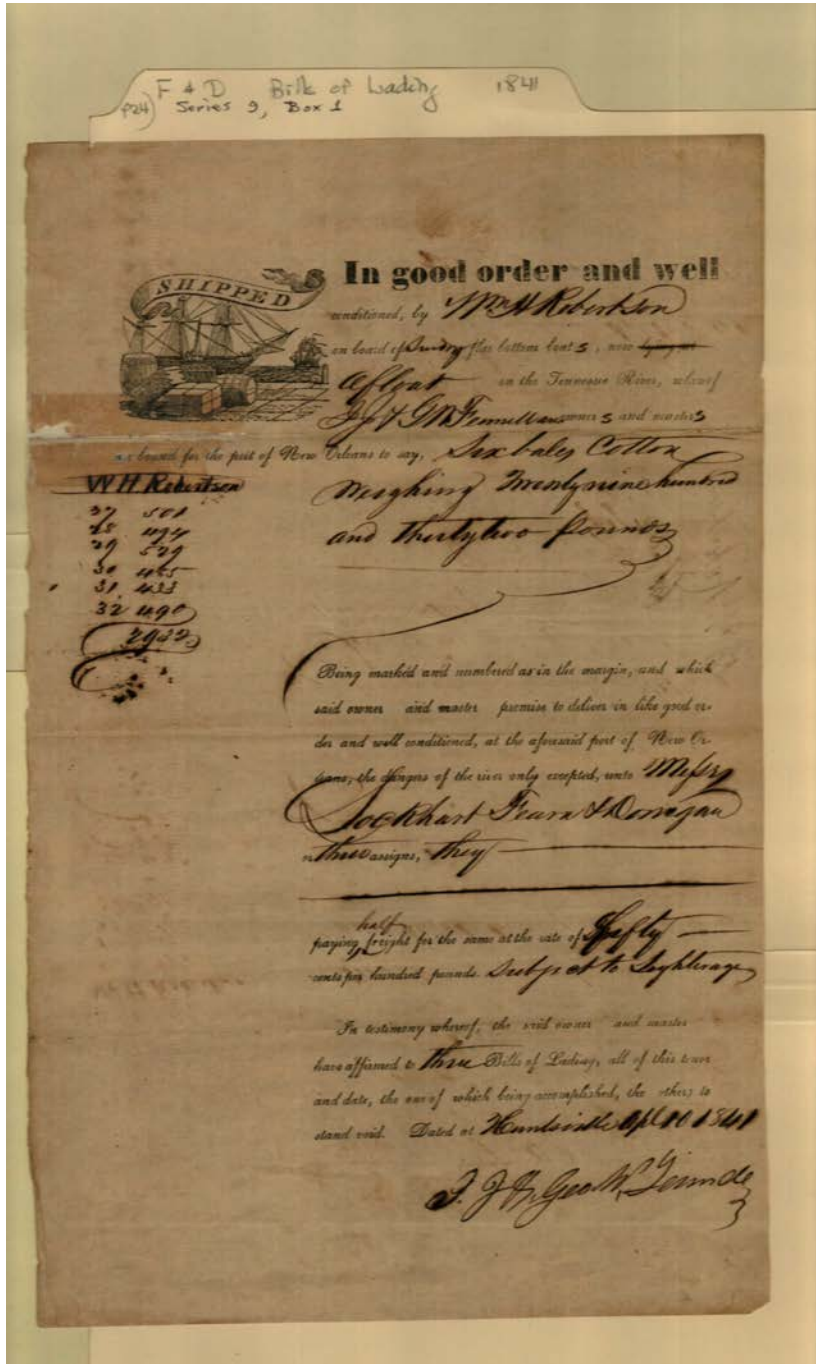 F & D Bills of Lading 1841
P24) Series 9, Box 1
SHIPPED
In good order and well
conditioned, by Wm H Robertson
on board of Sundry flat bottom boats, now lying at
afloat in the Tennessee River, whereof
J J & G W owners and masters
bound for the port of New Orleans to say, Six bales Cotton
W H Robertson
Weighing Twenty nine hundred
and thirty two pounds
27 501
28 494
29 529
30 485
31 433
32 490
2932
Being marked and numbered as in the margin, and which
said owner and master promise to deliver in like good or-
der and well conditioned, at the aforesaid port of New Or-
leans, the dangers of the river only excepted, unto Messrs
Lockhart Fearn & Donegan
or their assigns, they
half
paying freight for the same at the rate of fifty
cents per hundred pounds. Subject to Lighterage
In testimony whereof, the said owner and master
have affirmed to three Bills of Lading, all of this tenor
and date, the one of which being accomplished, the others to
stand void. Dated at Huntsville Apl 10 1841
J. J. & Geo W